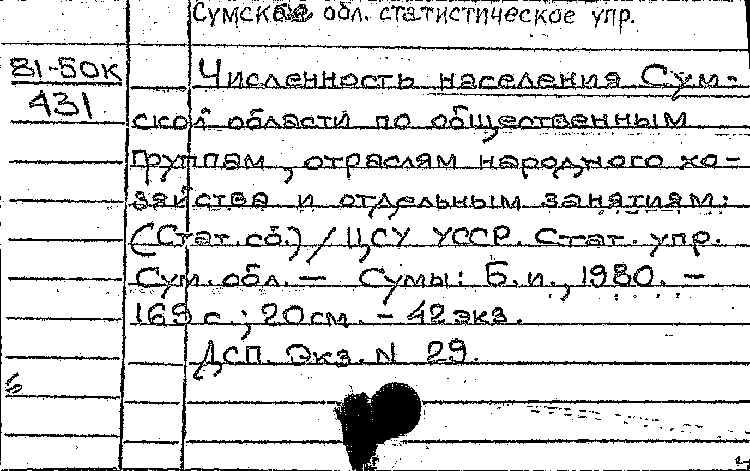 Сумское обл. статистическое упр.
81-50к
431
Численность населения Сум-
ской области по общественным
группам, отраслям народного хо-
зяйства и отдельным занятиям:
(Стат. сб.) / ЦСУ УССР. Стат. упр.
Сум. обл. — Сумы: Б. и., 1980. —
169 с.; 20 см. - 42 экз.
ДСП. Экз. N 29.
6